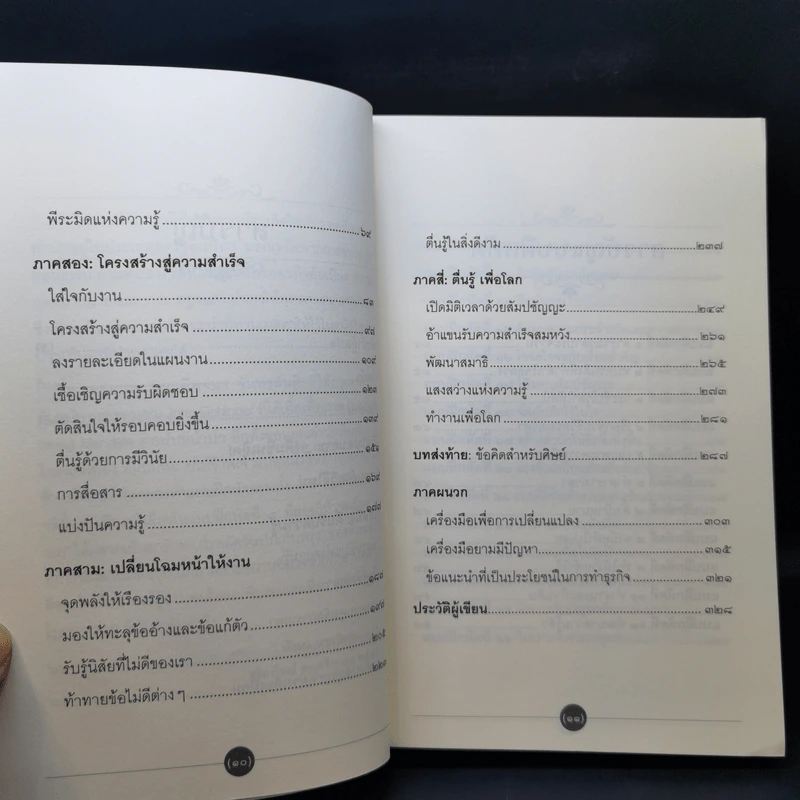 พีระมิดแห่งความรู้ ๖๙
ภาคสอง: โครงสร้างสู่ความสำเร็จ
ใส่ใจกับงาน ๘๓
โครงสร้างสู่ความสำเร็จ ๙๗
ลงรายละเอียดในแผนงาน ๑๐๙
เชื้อเชิญความรับผิดชอบ ๑๒๓
ตัดสินใจให้รอบคอบยิ่งขึ้น ๑๓๙
ตื่นรู้ด้วยการมีวินัย ๑๕๑
การสื่อสาร ๑๖๙
แบ่งปันความรู้ ๑๗๗
ภาคสาม: เปลี่ยนโฉมหน้าให้งาน
จุดพลังให้เรืองรอง ๑๘๗
มองให้ทะลุข้ออ้างและข้อแก้ตัว
รับรู้นิสัยที่ไม่ดีของเรา ๒๐๕
ท้าทายข้อไม่ดีต่าง ๆ
(๑๐)
ตื่นรู้ในสิ่งดีงาม ๒๓๗
ภาคสี่: ตื่นรู้ เพื่อโลก
เปิดมิติเวลาด้วยสัมปชัญญะ ๒๔๙
อ้าแขนรับความสำเร็จสมหวัง ๒๖๑
พัฒนาสมาธิ ๒๖๕
แสงสว่างแห่งความรู้ ๒๗๓
ทำงานเพื่อโลก ๒๘๑
บทส่งท้าย: ข้อคิดสำหรับศิษย์ ๒๘๗
ภาคผนวก
เครื่องมือเพื่อการเปลี่ยนแปลง ๓๐๓
เครื่องมือยามมีปัญหา ๓๑๕
ข้อแนะนำที่เป็นประโยชน์ในการทำธุรกิจ ๓๒๑
ประวัติผู้เขียน ๓๒๘
(๑๑)